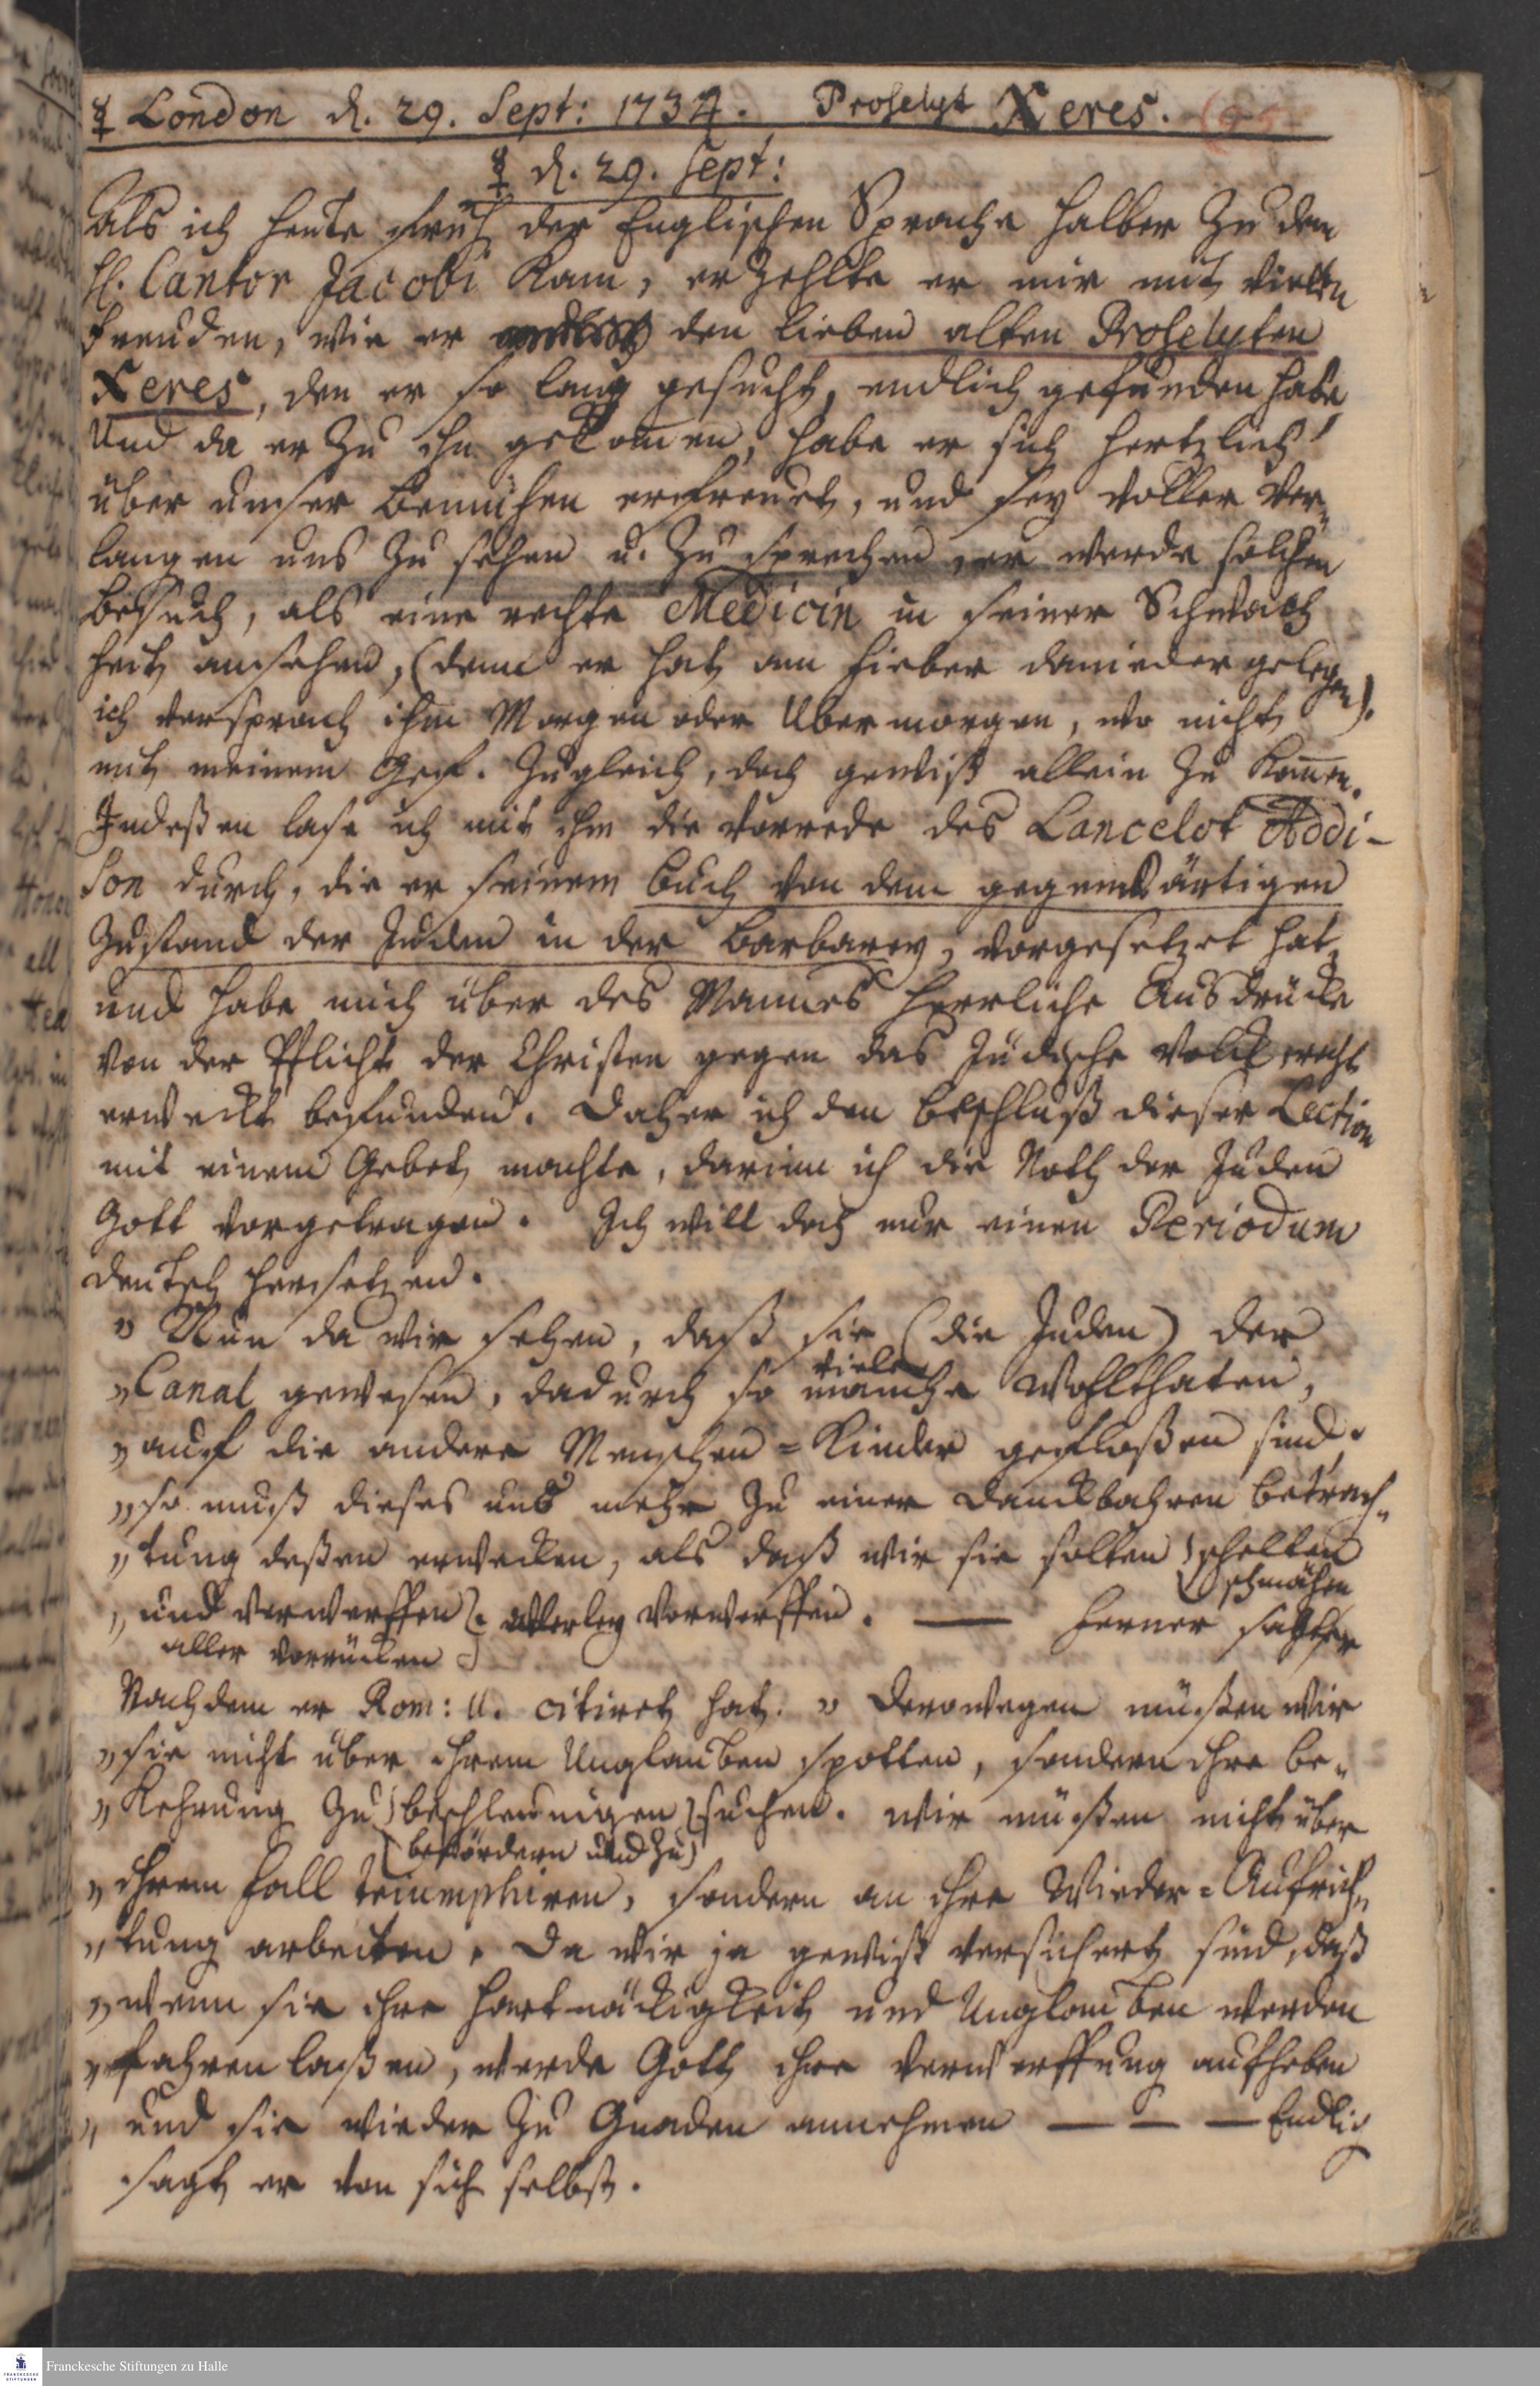 ☿ London d. 29. Sept: 1734. Proselyt Xeres. (95
☿ d. 29. Sept:
Als ich heute fruh der Englischen Sprache halber zu dem
H. Cantor Jacobi kam, erzehlte er mir mit vielen
Freuden, wie er den lieben alten Proselyten
Xeres, den er so lang gesucht, endlich gefunden habe
Und da er zu ihm gekom̅en, habe er sich hertzlich
über unser Bemühen erfreuet, und sey voller Ver„
langen uns zu sehen u. zu sprechen, er werde solchen
Besuch, als eine rechte Medicin in seiner Schwach
heit ansehen, (denn er hat am Fieber danieder gelegen).
ich versprach ihm Morgen oder Ubermorgen, wo nicht
mit meinem Gef. zugleich, doch gewiß allein zu kom̅en.
Indeßen lase ich mit ihm die Vorrede des Lancelot Addi-
son durch, die er seinem Buch von dem gegenwärtigen
Zustand der Juden in der Barbarey, vorgesetzet hat,
und habe mich über des Mannes herrliche Ausdrücke
von der Pflicht der Christen gegen das Jüdische Volck recht
erweckt befunden. Daher ich den Beschluß dieser Lection
mit einem Gebet machte, darinn ich die Noth der Juden
Gott vorgetragen. Ich will doch nur einen Periodum
deutsch hersetzen.
„ Nun da wir sehen, daß sie (die Juden) der
viele
„Canal gewesen, dadurch so manche Wohlthaten,
„auf die andere Menschen=Kinder gefloßen sind.
„so muß dieses uns mehr zu einer danckbahren Betrach„
„tung deßen erwecken, als daß wir sie solten schelten
schmähen
„und verwerffen allerley vorwerffen. — Ferner sagt er
aller vorrücken
Nachdem er Rom: 11. citiret hat. „ Derowegen müßen wir
„sie nicht über ihrem Unglauben spotten, sondern ihre Be„
„kehrung zu beschleunigen suchen. Wir müßen nicht über
(befördern und zu)
„ihrem Fall triumphiren, sondern an ihre Wieder=Aufrich„
„tung arbeiten. Da wir ja gewiß versichert sind, daß
„wenn sie ihre Hartnäckigkeit und Unglauben werden
„fahren laßen, werde Gott ihre Verwerffung aufheben
„und sie wieder zu Gnaden annehmen — — — Endlich
sagt er von sich selbst.
Franckesche Stiftungen zu Halle